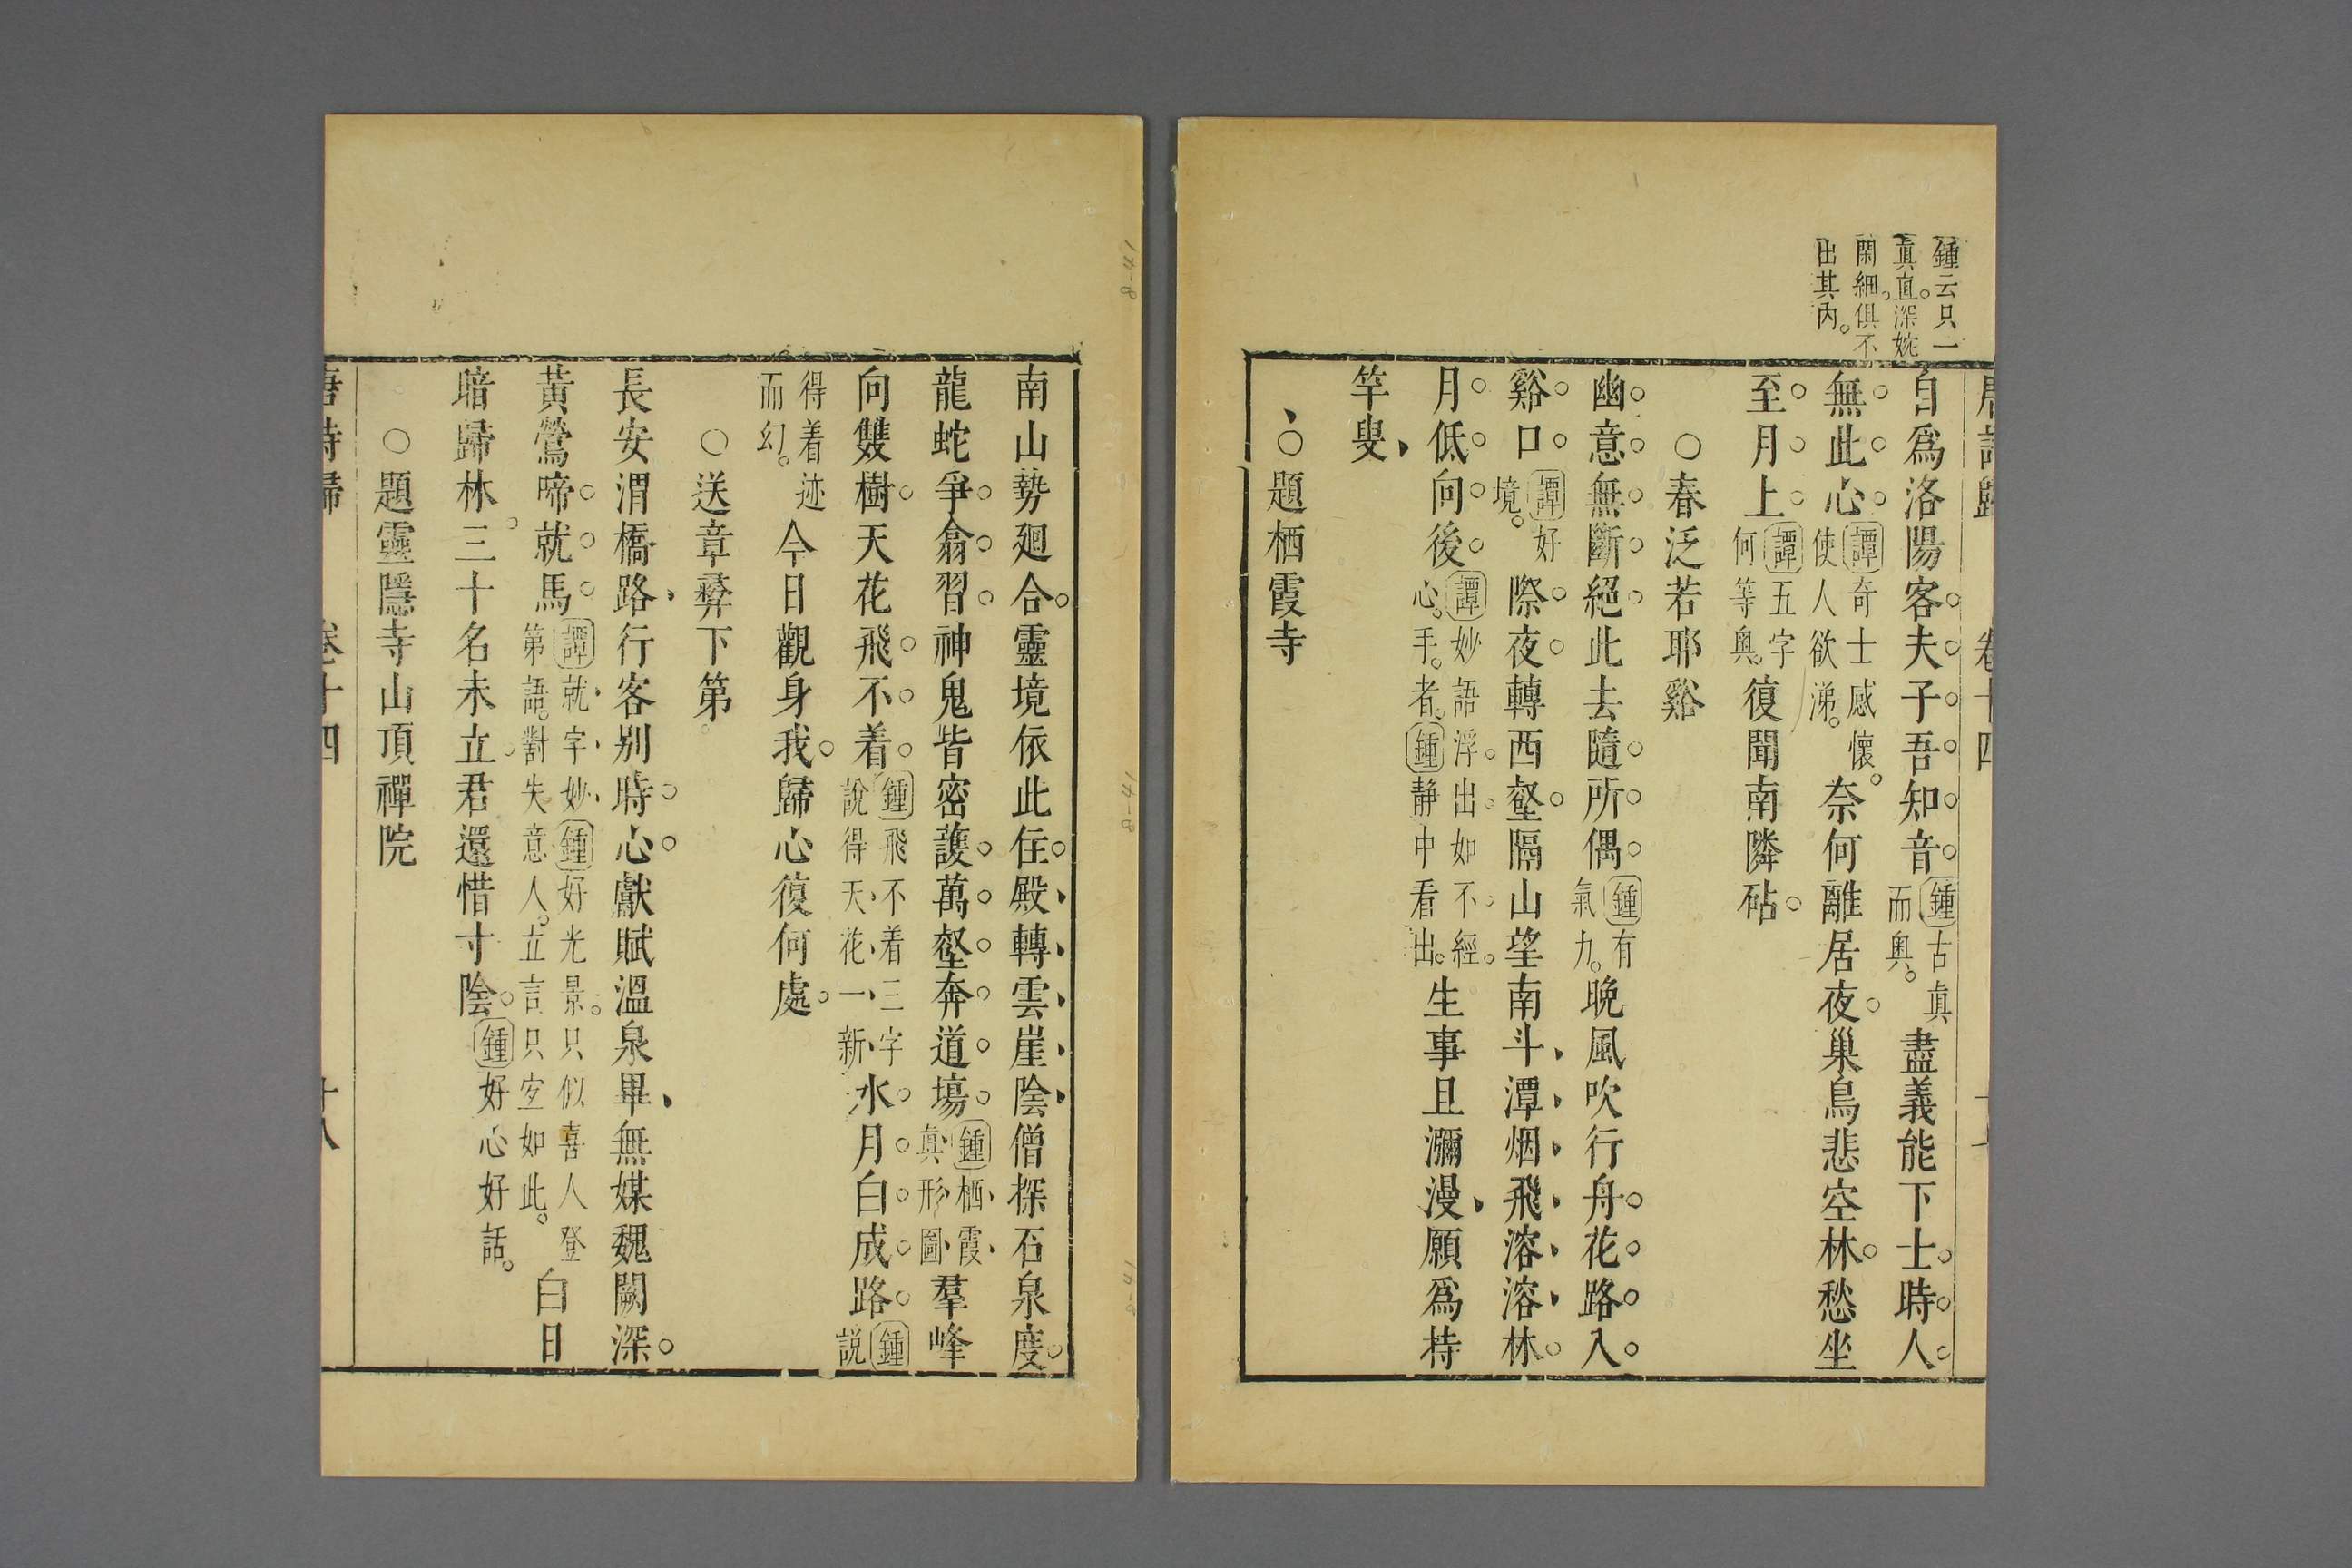 鍾云只一
眞直深婉
閑細俱不
出其內
唐詩歸 卷十四
自爲洛陽客夫子吾知音鍾古眞而奧盡義能下士時人
無此心譚奇士感懷使人欲涕奈何離居夜巢鳥悲空林愁坐
至月上譚五字何等奧復聞南隣砧
○春泛若耶谿
幽意無斷絕此去隨所偶鍾有氣力晚風吹行舟花路入
谿口譚好境際夜轉西壑隔山望南斗潭烟飛溶溶林
月低向後譚妙語浮出如不經心手者鍾靜中看出生事且瀰漫願爲持
竿叟
○題栖霞寺
南山勢廻合靈境依此住殿轉雲崖陰僧探石泉度
龍蛇爭翕習神鬼皆密護萬壑奔道場鍾栖霞眞形圖羣峰
向雙樹天花飛不着鍾飛不着三字說得天花一新水月白成路鍾說
得着迹而幻今日觀身我歸心復何處
○送章彝下第
長安渭橋路行客別時心獻賦溫泉畢無媒魏闕深
黃鶯啼就馬譚就字妙鍾好光景只似喜人登第語對失意人立言只宜如此白日
暗歸林三十名未立君還惜寸陰鍾好心好話
○題靈隱寺山頂禪院
唐詩歸 卷十四 十八